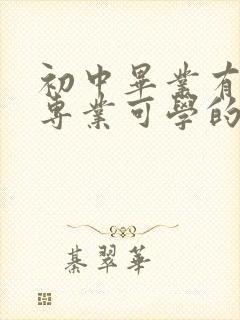 初中畢業有
專業可學的
綦翠華